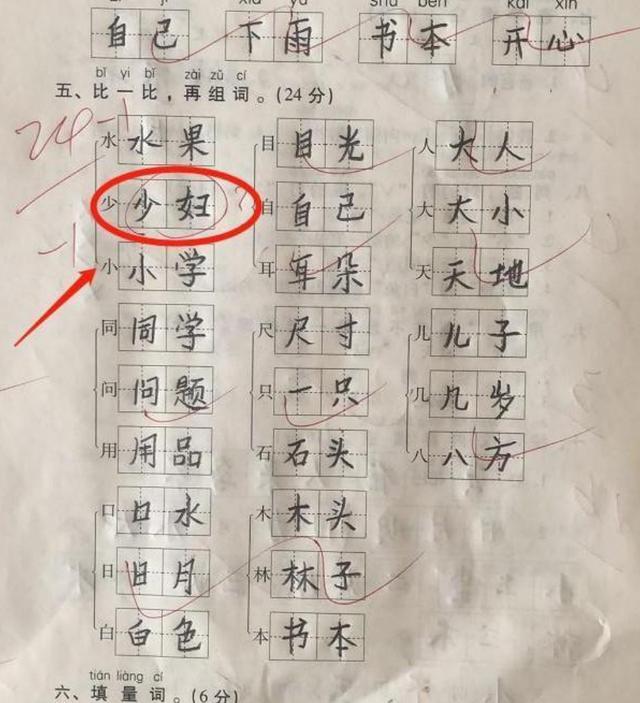 自己 下雨 书本 开心
bǐ yi bǐ zài zǔ cí
五、比一比，再组词。(24分)
24 -1
水 水果 目 目光 人 大人
少 少妇 ? 自 自己 大 大小
-1
小 小学 耳 耳朵 天 天地
同 同学 尺 尺寸 儿 儿子
问 问题 只 一只 几 几岁
用 用品 石 石头 八 八方
口 口水 木 木头
日 日月 林 林子
白 白色 本 书本
tián liàng cí
六、填量词。(6分)